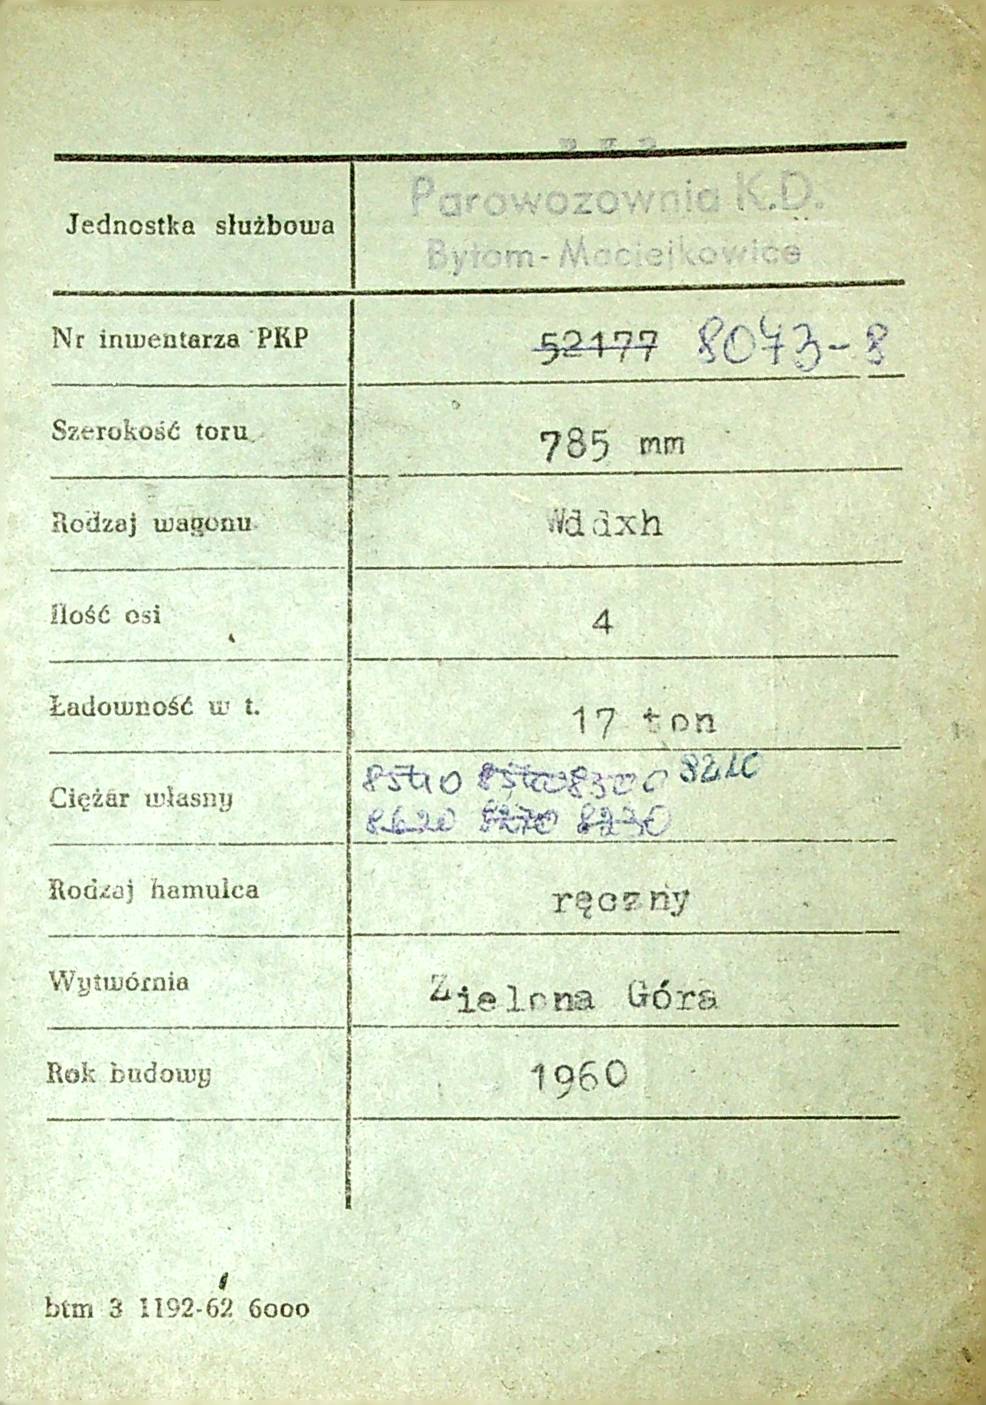 Parowozownia K.D.
Jednostka służbowa
Bytom-Maciejkowice
Nr inwentarza PKP 52177 8073-8
Szerokość toru 785 mm
Rodzaj wagonu Wddxh
Ilość osi 4
Ładowność w t. 17 ton
8540 8300 8210
Ciężar własny
8620 8270 8230
Rodzaj hamulca ręczny
Wytwórnia Zielona Góra
Rok budowy 1960
btm 3 1192-62 6000